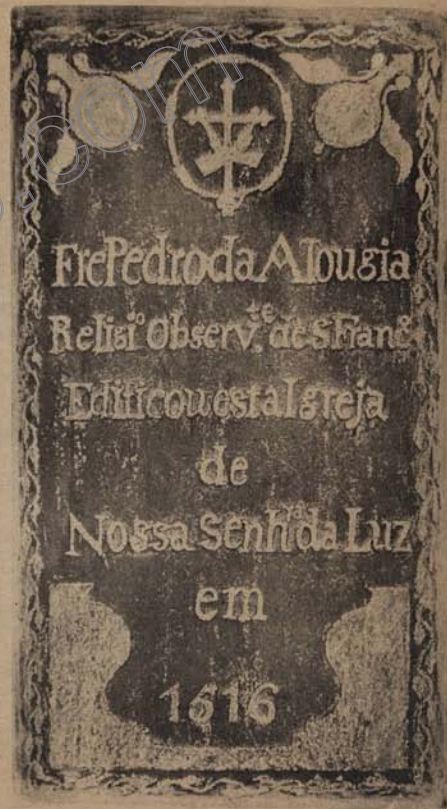 .com
Frei Pedro da Atougia
Religiº Observ.te de S Franc&
Edificou esta Igreja
de
Nossa Senhrª da Luz
em
1616